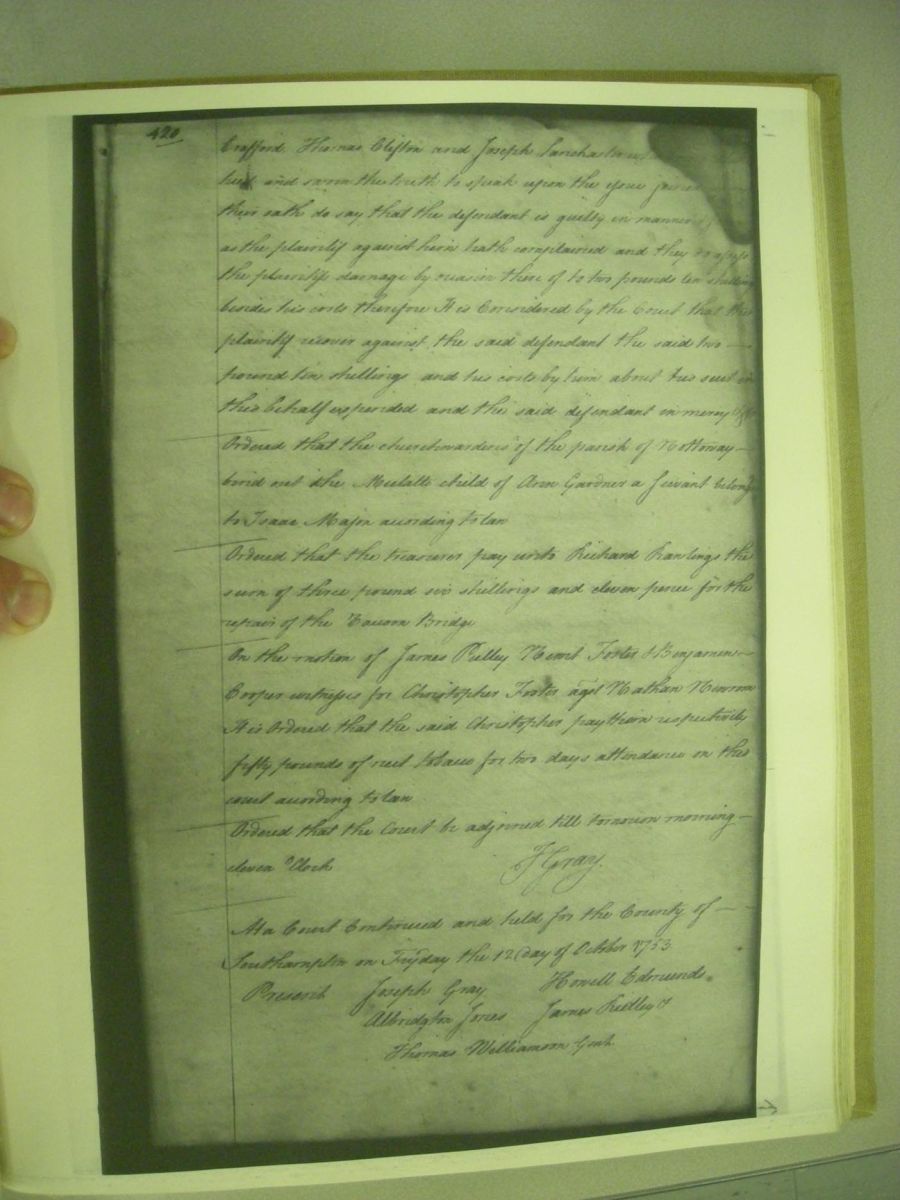 420
Crafford Thomas Clifton and Joseph Lancaster
tried and sworn the truth to speak upon the Issue joined
their oath do say that the defendant is guilty in manner
as the plaintif against him hath complained and they do assess
the plaintifs damage by reason there of to two pounds ten shillings
besides his costs therefore It is Considered by the Court that the
plaintif recover against the said defendant the said two —
pound ten shillings and his costs by him about his suit in
this behalf expended and the said defendant in mercy &c
Ordered that the churchwardens of the parish of Nottoway —
bind out the Mulatto child of Ann Gardner a Servant belong
to Isaac Major according to law
Ordered that the treasurer pay unto Richard Rawlings the
sum of three pound six shillings and eleven pence for the
repairs of the Tavern Bridge
On the motion of James Ridley Newit Foster & Benjamin —
Cooper witnesses for Christopher Foster agst Nathan Newsom
It is Ordered that the said Christopher pay them respectively
fifty pounds of nett tobacco for two days attendance on this
court according to law
Ordered that the Court be adjorned till tomorrow morning —
eleven oClock
J Gray
At a Court Continued and held for the County of —
Southampton on Fryday the 12 day of October 1753
Present Joseph Gray Howell Edmunds
Albridgton Jones James Ridley &
Thomas Williamson Gent